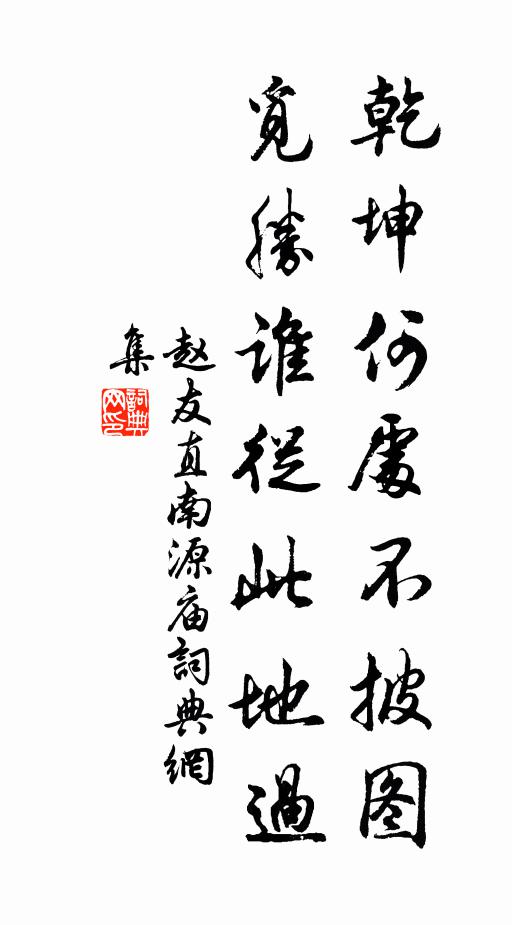 乾坤何處不披图
覓勝誰從此地過
赵友直南源庙詞典網
集
詞典
网印